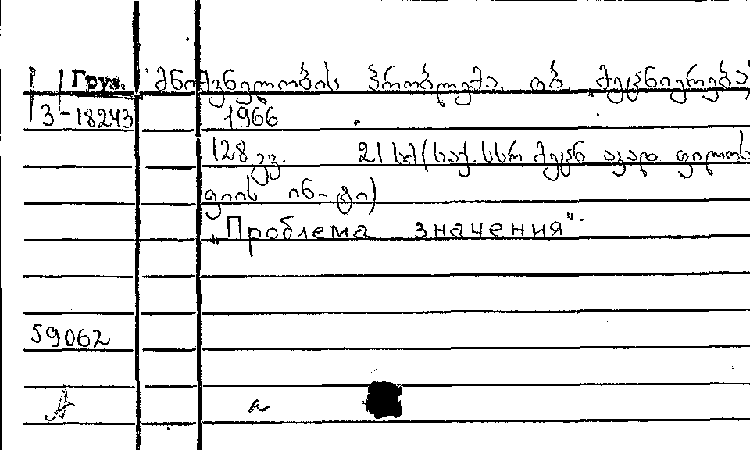 Груз. მნიშვნელობის პრობლემა. თბ. მეცნიერება,
3-18243 1966
128 გვ. 21 სმ (საქ. სსრ მეცნ აკად ფილოსო
ფიის ინ-ტი)
„Проблема значения".
59062
A a